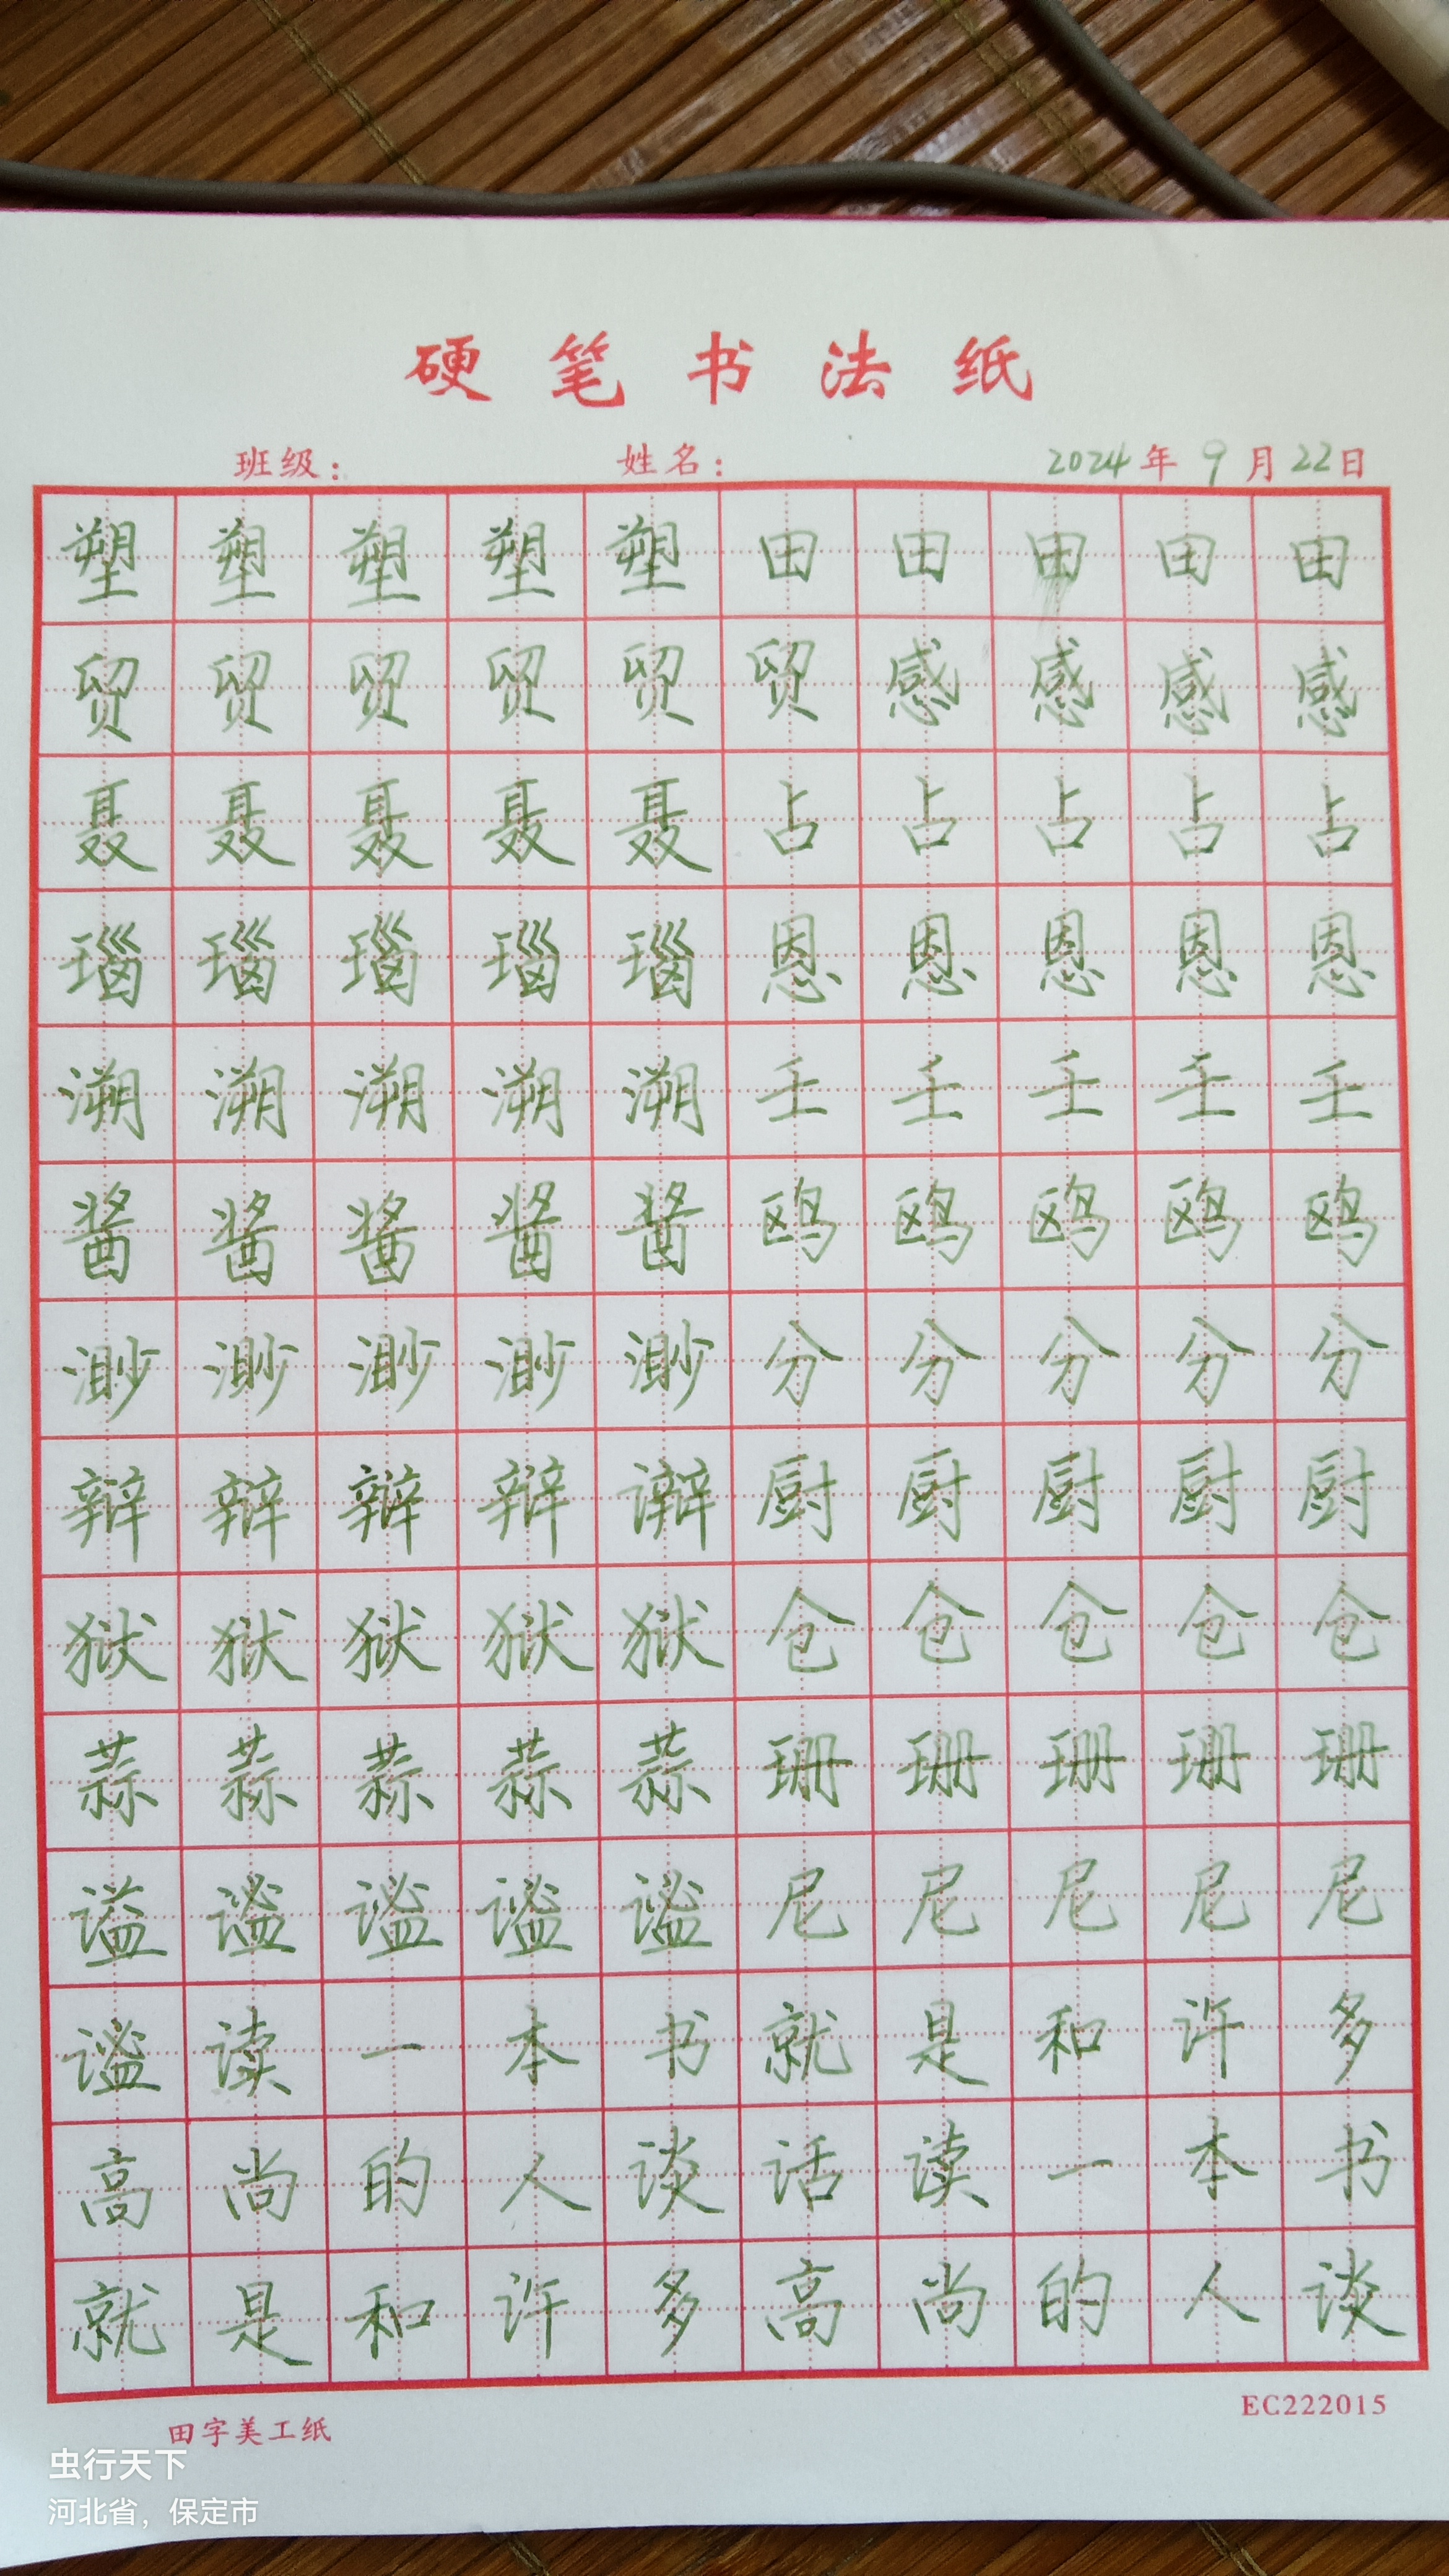 硬笔书法纸
班级： 姓名： 2024年9月22日
塑塑塑塑塑田田田田田
贸贸贸贸贸贸感感感感
聂聂聂聂聂占占占占占
瑙瑙瑙瑙瑙恩恩恩恩恩
溯溯溯溯溯壬壬壬壬壬
酱酱酱酱酱鸥鸥鸥鸥鸥
渺渺渺渺渺分分分分分
辩辩辩辩辩厨厨厨厨厨
狱狱狱狱狱仓仓仓仓仓
蒜蒜蒜蒜蒜珊珊珊珊珊
谥谥谥谥谥尼尼尼尼尼
谥读一本书就是和许多
高尚的人谈话读一本书
就是和许多高尚的人谈
田字美工纸 EC222015
虫行天下
河北省，保定市